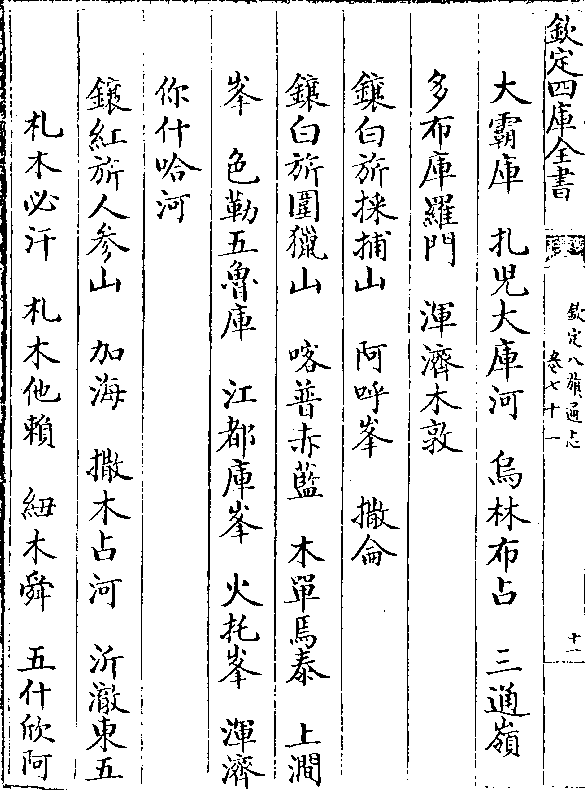 欽定四庫全書
欽定八旗通志
卷七十一
十一
大霸庫　扎兒大庫河　烏林布占　三通嶺
多布庫羅門　渾濟木敦
鑲白旂採捕山　阿呼峯　撒侖
鑲白旂圍獵山　喀普赤藍　木單焉泰　上澗
峯　色勒五魯庫　江都庫峯　火托峯　渾濟
你什哈河
鑲紅旂人參山　加海　撒木占河　沂澈東五
札木必汗　札木他賴　紐木舜　五什欣阿